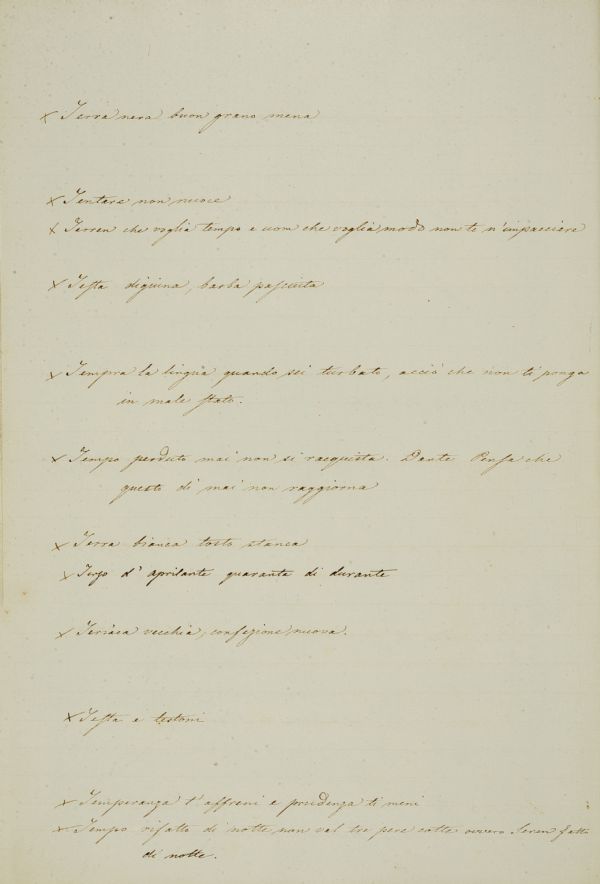 × Terra nera buon grano mena
× Tentare non nuoce
× Terren che voglia tempo e uom che voglia modo non te n'impacciare
× Testa digiuna, barba pasciuta
× Tempra la lingua quando sei turbato, acciò che non ti ponga
in male stato.
× Tempo perduto mai non si racquista. Dante Pensa che
questo dì mai non raggiorna
× Terra bianca tosto stanca
× Terzo d'aprilante quaranta dì durante
× Teriaca vecchia, confezione nuova.
× Testa e testoni
× Temperanza t'affreni e prudenza ti meni
× Tempo rifatto di notte non val tre pere cotte ovvero Seren fatto
di notte.